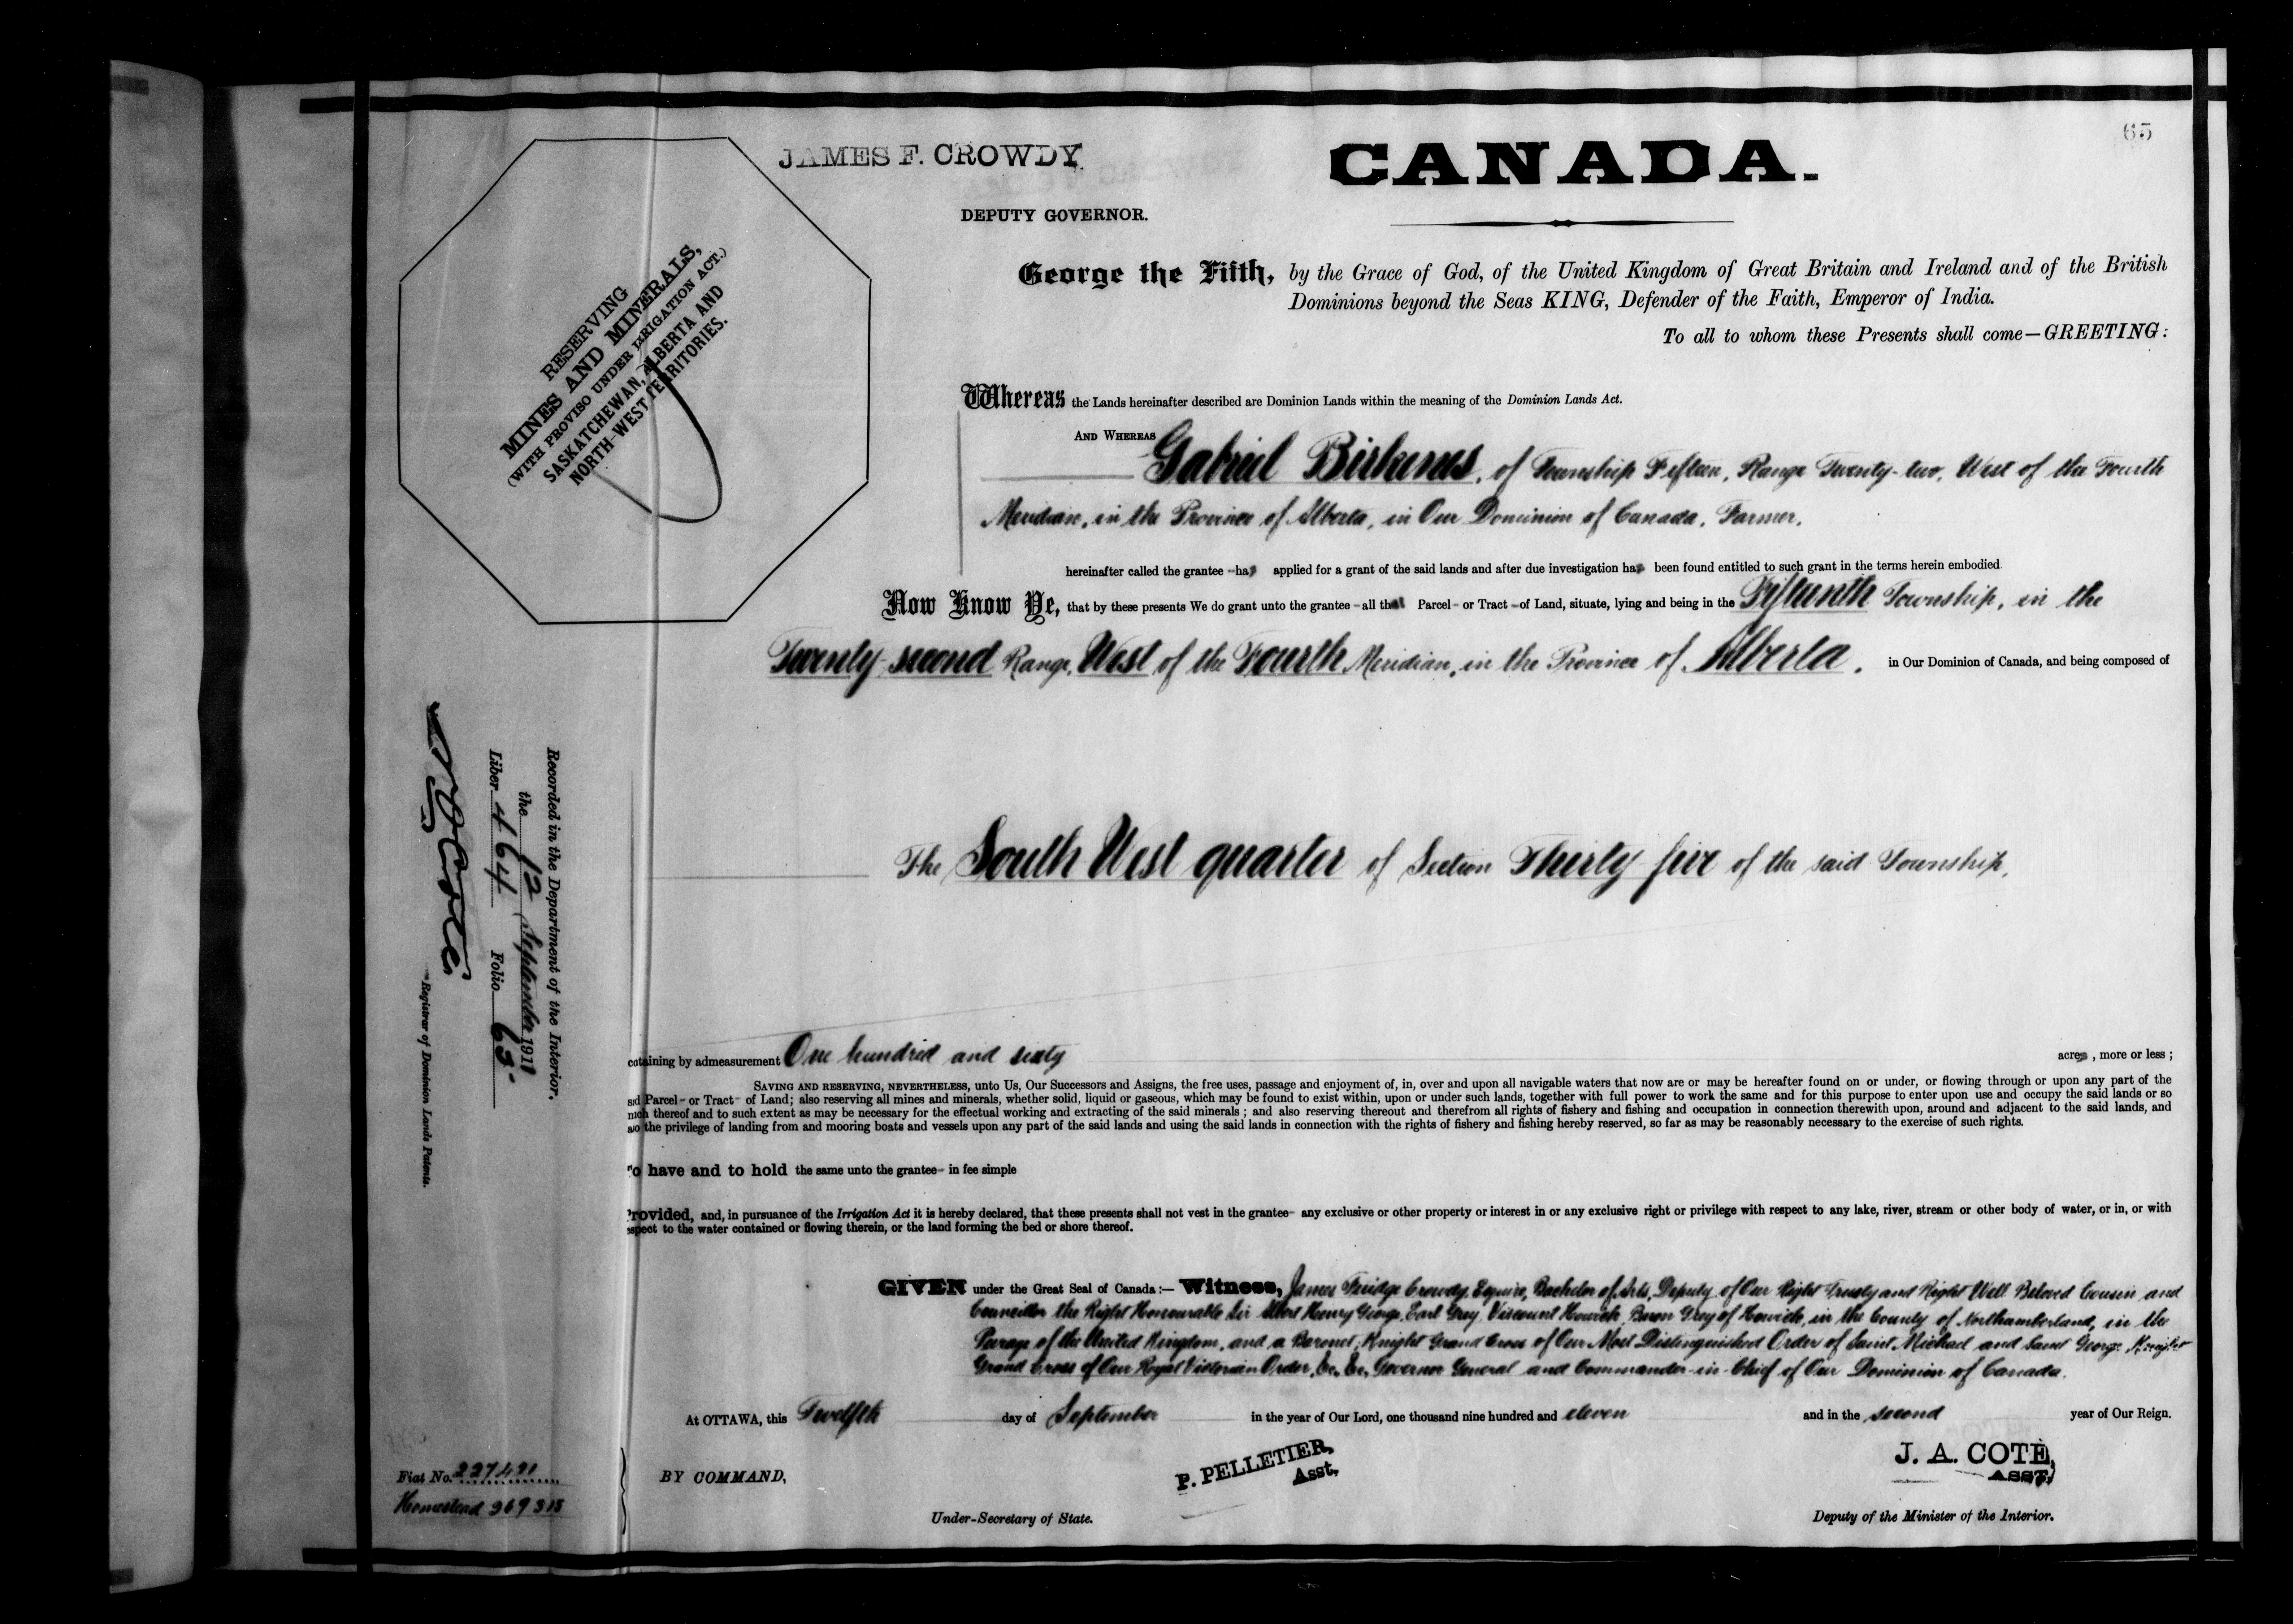 65
JAMES F. CROWDY.
CANADA.
DEPUTY GOVERNOR.
RESERVING
MINES AND MINERALS,
(WITH PROVISO UNDER IRRIGATION ACT.)
SASKATCHEWAN, ALBERTA AND
NORTH-WEST TERRITORIES.
George the Fifth, by the Grace of God, of the United Kingdom of Great Britain and Ireland and of the British
Dominions beyond the Seas KING, Defender of the Faith, Emperor of India.
To all to whom these Presents shall come—GREETING:
Whereas the Lands hereinafter described are Dominion Lands within the meaning of the Dominion Lands Act.
AND WHEREAS
Gabriel Birkenes, of Township Fifteen, Range Twenty-two, West of the Fourth
Meridian, in the Province of Alberta, in Our Dominion of Canada, Farmer,
hereinafter called the grantee has applied for a grant of the said lands and after due investigation has been found entitled to such grant in the terms herein embodied
Now Know Ye, that by these presents We do grant unto the grantee all that Parcel or Tract of Land, situate, lying and being in the Fifteenth Township, in the
Twenty-second Range, West of the Fourth Meridian, in the Province of Alberta, in Our Dominion of Canada, and being composed of
The South West quarter of Section Thirty-five of the said Township,
containing by admeasurement One hundred and sixty acres, more or less;
SAVING AND RESERVING, NEVERTHELESS, unto Us, Our Successors and Assigns, the free uses, passage and enjoyment of, in, over and upon all navigable waters that now are or may be hereafter found on or under, or flowing through or upon any part of the
said Parcel or Tract of Land; also reserving all mines and minerals, whether solid, liquid or gaseous, which may be found to exist within, upon or under such lands, together with full power to work the same and for this purpose to enter upon use and occupy the said lands or so
much thereof and to such extent as may be necessary for the effectual working and extracting of the said minerals; and also reserving thereout and therefrom all rights of fishery and fishing and occupation in connection therewith upon, around and adjacent to the said lands, and
also the privilege of landing from and mooring boats and vessels upon any part of the said lands and using the said lands in connection with the rights of fishery and fishing hereby reserved, so far as may be reasonably necessary to the exercise of such rights.
To have and to hold the same unto the grantee in fee simple
Provided, and, in pursuance of the Irrigation Act it is hereby declared, that these presents shall not vest in the grantee any exclusive or other property or interest in or any exclusive right or privilege with respect to any lake, river, stream or other body of water, or in, or with
respect to the water contained or flowing therein, or the land forming the bed or shore thereof.
GIVEN under the Great Seal of Canada:— Witness, James Fuidge Crowdy, Esquire, Bachelor of Arts, Deputy of Our Right Trusty and Right Well Beloved Cousin and
Councillor the Right Honourable Sir Albert Henry George, Earl Grey, Viscount Howick, Baron Grey of Howick, in the County of Northumberland, in the
Peerage of the United Kingdom, and a Baronet; Knight Grand Cross of Our Most Distinguished Order of Saint Michael and Saint George, Knight
Grand Cross of Our Royal Victorian Order, &c., &c., Governor General and Commander-in-Chief of Our Dominion of Canada.
At OTTAWA, this Twelfth day of September in the year of Our Lord, one thousand nine hundred and eleven and in the second year of Our Reign.
BY COMMAND,
P. PELLETIER,
Asst.
Under-Secretary of State.
J. A. COTE,
ASST,
Deputy of the Minister of the Interior.
Recorded in the Department of the Interior,
the 12 September 1911
Liber 464 Folio 65
Registrar of Dominion Lands Patents.
Fiat No. 227421
Homestead 269313